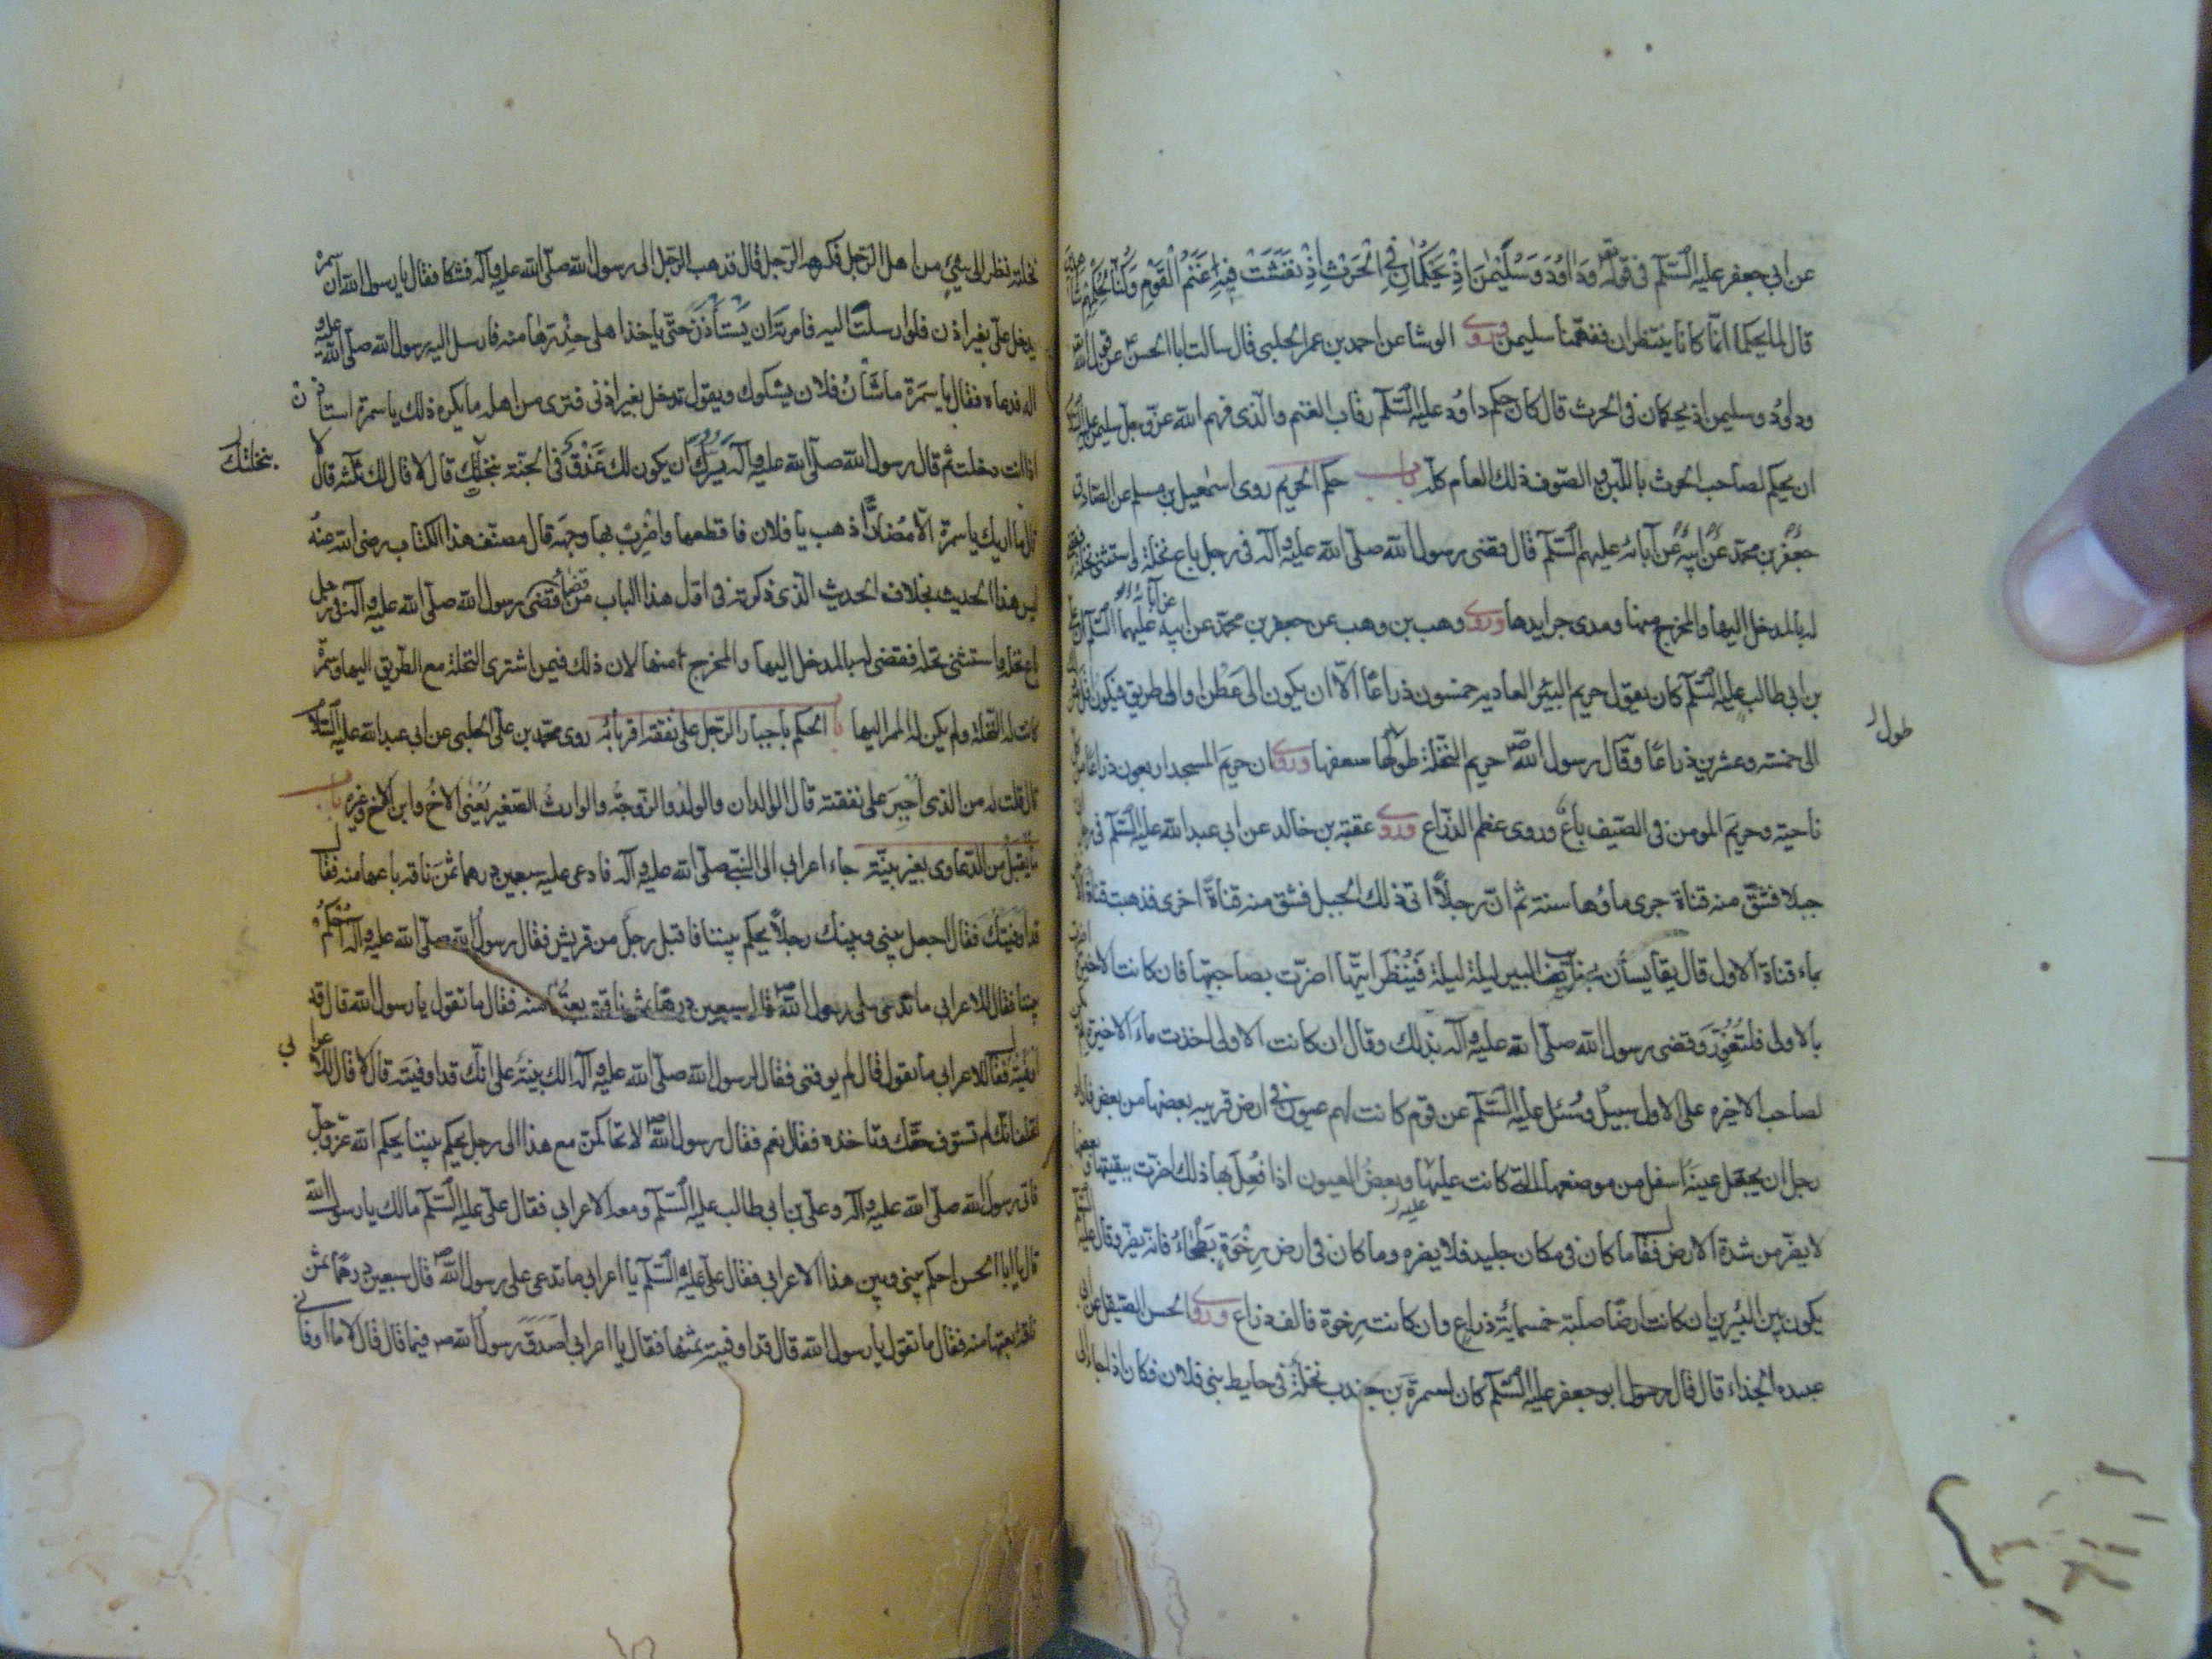 عن ابي جعفر عليه السلم في قوله تعالى وداود وسليمن اذ يحكمان في الحرث اذ نفشت فيه غنم القوم وكنا لحكمهم
قال لم يحكما انما كانا يتناظران ففهمنا سليمن وروى الوشا عن احمد بن عمر الحلبي قال سالت ابا الحسن ع عن قول الله
وداود وسليمن اذ يحكمان في الحرث قال كان حكم داود عليه السلم رقاب الغنم والذي فهم الله عز وجل سليمن عليه
ان يحكم لصاحب الحرث باللبن والصوف ذلك العام كله باب حكم الحريم روى اسمعيل بن مسلم عن الصادق
جعفر بن محمد عن ابيه عن آبائه عليهم السلم قال قضى رسول الله صلى الله عليه وآله في رجل باع نخلة واستثنى نخلة
له بالمدخل اليها والمخرج منها ومدى جرايدها وروى وهب بن وهب عن جعفر بن محمد عن ابيه عليهما السلم ان
بن ابي طالب عليه السلم كان يقول حريم البئر العادية خمسون ذراعا الا ان يكون الى عطن او الى طريق فيكون اقل
الى خمسة وعشرين ذراعا وقال رسول الله ص حريم النخلة طولها سعفها وروى ان حريم المسجد اربعون ذراعا من
طول
ناحية وحريم المومن في الصيف باع وروى عظم الذراع وروى عقبة بن خالد عن ابي عبد الله عليه السلم في رجل
جبلا فشق منه قناة جرى ماؤها سنة ثم ان رجلا اتى ذلك الجبل فشق منه قناة اخرى فذهبت قناة
بماء قناة الاول قال يقايسان بحقايب البير ليلة ليلة فينظر ايتها اضرت بصاحبها فان كانت الاخيرة
بالاولى فلتعور وقضى رسول الله صلى الله عليه وآله بذلك وقال ان كانت الاولى اخذت ماء الاخيرة لم
لصاحب الاخيره على الاول سبيل وسئل عليه السلم عن قوم كانت لهم عيون في ارض قريبه بعضها من بعض فاراد
رجل ان يجعل عينه اسفل من موضعها التي كانت عليها وبعض العيون اذا فعل بها ذلك اضرت ببقيتها
لا يضر من شدة الارض فقال ما كان في مكان جليد فلا يضره وما كان في ارض رخوة بطحاء فانه يضر وقال عليه
يكون بين البئرين ان كانت ارضا صلبة خمسمائة ذراع وان كانت رخوة فالف ذراع وروى الحسن الصيقل عن ابي
عبيده الحذاء قال قال ابو جعفر عليه السلم كان لسمرة بن جندب نخلة في حايط بني فلان فكان اذا جاء الى
نخلته نظر الى شيء من اهل الرجل فكرهه الرجل قال فذهب الرجل الى رسول الله صلى الله عليه وآله فشكا فقال يا رسول الله ان سمرة
يدخل علي بغير اذن فلو ارسلت اليه فامرته ان يستأذن حتى ياخذ اهلي حذرها منه فارسل اليه رسول الله صلى الله عليه و
اله فدعاه فقال يا سمرة ما شأن فلان يشكوك ويقول تدخل بغير اذني فترى من اهله ما يكره ذلك يا سمرة استاذن
اذا انت دخلت ثم قال رسول الله صلى الله عليه وآله يسرك ان يكون لك عذق في الجنة بنخلتك قال لا قال لك ثلثة قال لا
بنخلتك
قال ما اريك يا سمرة الا مضارا اذهب يا فلان فاقطعها واضرب بها وجهه قال مصنف هذا الكتاب رضي الله عنه
ليس هذا الحديث بخلاف الحديث الذي ذكرته في اول هذا الباب من قضاء رسول الله صلى الله عليه وآله في رجل
باع نخله واستثنى نخله فقضى له بالمدخل اليها والمخرج منها لان ذلك فيمن اشترى النخلة مع الطريق اليها وسمرة
كانت له النخلة ولم يكن له الممر اليها باب الحكم باجبار الرجل على نفقة اقربائه روى محمد بن علي الحلبي عن ابي عبد الله عليه السلم
قال قلت له من الذي اجبر على نفقته قال الوالدان والولد والزوجة والوارث الصغير يعني الاخ وابن الاخ وغيره باب
ما يقبل من الدعاوى بغير بينة جاء اعرابي الى النبي صلى الله عليه وآله فادعى عليه سبعين درهما ثمن ناقة باعها منه فقال
قد اوفيتك فقال اجعل بيني وبينك رجلا يحكم بيننا فاقبل رجل من قريش فقال رسول الله صلى الله عليه وآله احكم
بيننا فقال للاعرابي ما تدعي على رسول الله ص قال سبعين درهما ثمن ناقة بعتها منه فقال ما تقول يا رسول الله قال قد
اوفيته فقال للاعرابي ما تقول قال لم يوفني فقال لرسول الله صلى الله عليه وآله الك بينة على انك قد اوفيته قال لا قال للاعرابي
اتحلف انك لم تستوف حقك وتاخذه فقال نعم فقال رسول الله ص لاتحاكمن مع هذا الى رجل يحكم بيننا بحكم الله عز وجل
فاتى رسول الله صلى الله عليه وآله وعلي بن ابي طالب عليه السلم ومعه الاعرابي فقال علي عليه السلم مالك يا رسول الله
قال يا ابا الحسن احكم بيني وبين هذا الاعرابي فقال علي عليه السلم يا اعرابي ما تدعي على رسول الله ص قال سبعين درهما ثمن
ناقة بعتها منه فقال ما تقول يا رسول الله قال قد اوفيته ثمنها فقال يا اعرابي اصدق رسول الله ص فيما قال قال لا ما اوفاني